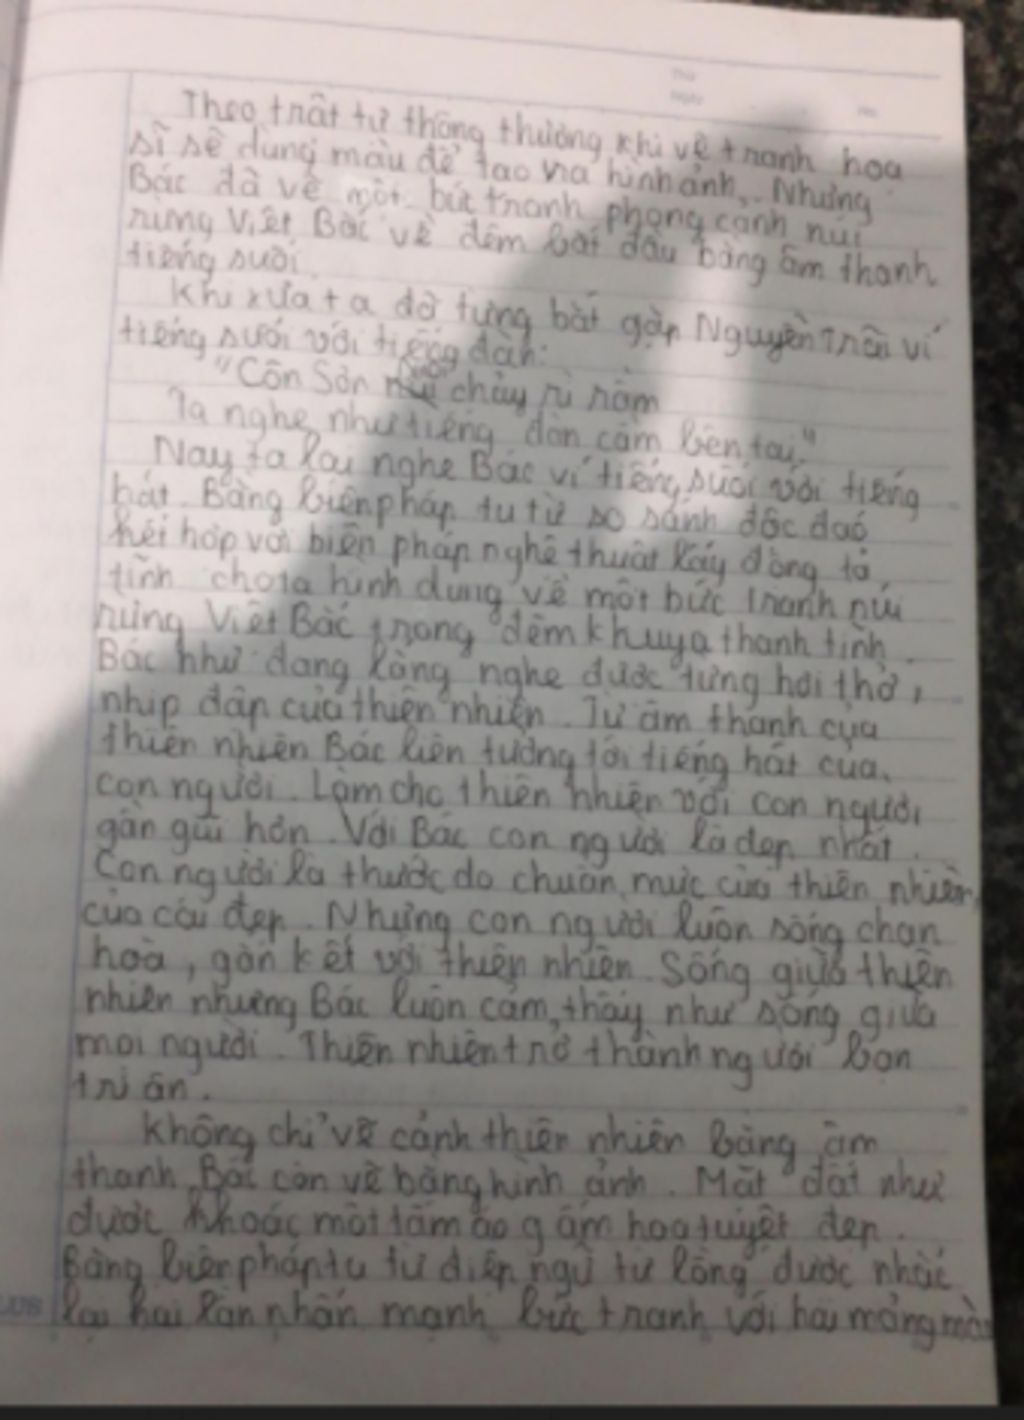 Theo trật tự thông thường khi vẽ tranh họa
sĩ sẽ dùng màu để tạo ra hình ảnh. Nhưng
Bác đã vẽ một bức tranh phong cảnh núi
rừng Việt Bắc về đêm bắt đầu bằng âm thanh
tiếng suối.
Khi xưa ta đã từng bắt gặp Nguyễn Trãi ví
tiếng suối với tiếng đàn:
"Côn Sơn chảy rì rầm
Ta nghe như tiếng đàn cầm bên tai."
Nay ta lại nghe Bác ví tiếng suối với tiếng
hát. Bằng biện pháp tu từ so sánh độc đáo
kết hợp với biện pháp nghệ thuật lấy động tả
tĩnh cho ta hình dung về một bức tranh núi
rừng Việt Bắc trong đêm khuya thanh tĩnh.
Bác như đang lắng nghe được từng hơi thở,
nhịp đập của thiên nhiên. Từ âm thanh của
thiên nhiên Bác liên tưởng tới tiếng hát của
con người. Làm cho thiên nhiên với con người
gần gũi hơn. Với Bác con người là đẹp nhất.
Con người là thước đo chuẩn mực của thiên nhiên,
của cái đẹp. Nhưng con người luôn sống chan
hoà, gắn kết với thiên nhiên. Sống giữa thiên
nhiên nhưng Bác luôn cảm thấy như sống giữa
mọi người. Thiên nhiên trở thành người bạn
tri ân.
Không chỉ vẽ cảnh thiên nhiên bằng âm
thanh Bác còn vẽ bằng hình ảnh. Mặt đất như
được khoác một tấm áo gấm hoa tuyệt đẹp.
Bằng biện pháp tu từ điệp ngữ từ lồng được nhắc
lại hai lần nhấn mạnh bức tranh với hai mảng màu